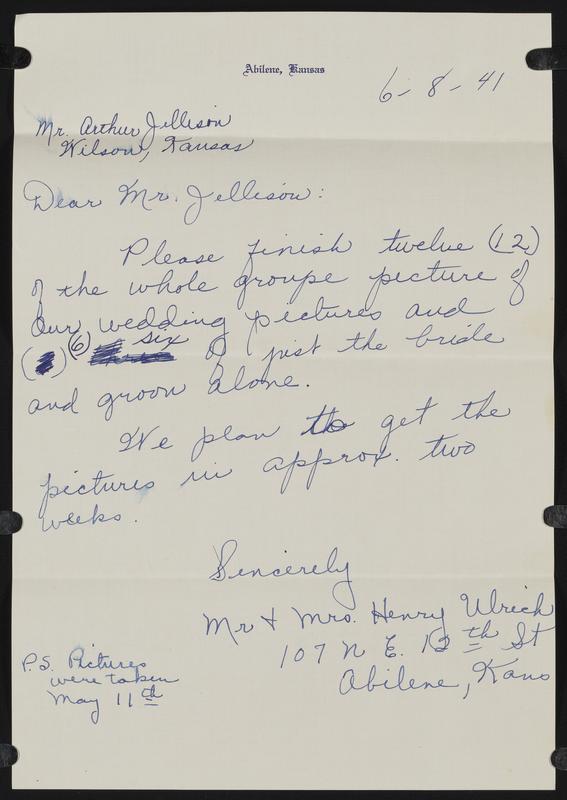 Abilene, Kansas
6 - 8 - 41
Mr. Arthur Jellison
Wilson, Kansas
Dear Mr. Jellison:
Please finish twelve (12)
of the whole groupe picture of
our wedding pictures and
(6) six of just the bride
and groon alone.
We plan to get the
pictures in approx. two
weeks.
Sincerely
Mr & Mrs. Henry Ulrich
107 N E. 12th St
Abilene, Kans
P.S. Pictures
were taken
May 11th